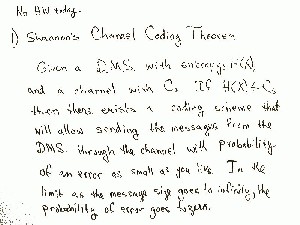 No HW today.
1) Shannon's Channel Coding Theorem
Given a DMS with entropy H(X)
and a channel with C, If H(X) < C,
then there exists a coding scheme that
will allow sending the messages from the
DMS through the channel with probability
of an error as small as you like. In the
limit as the message size goes to infinity, the
probability of error goes to zero.